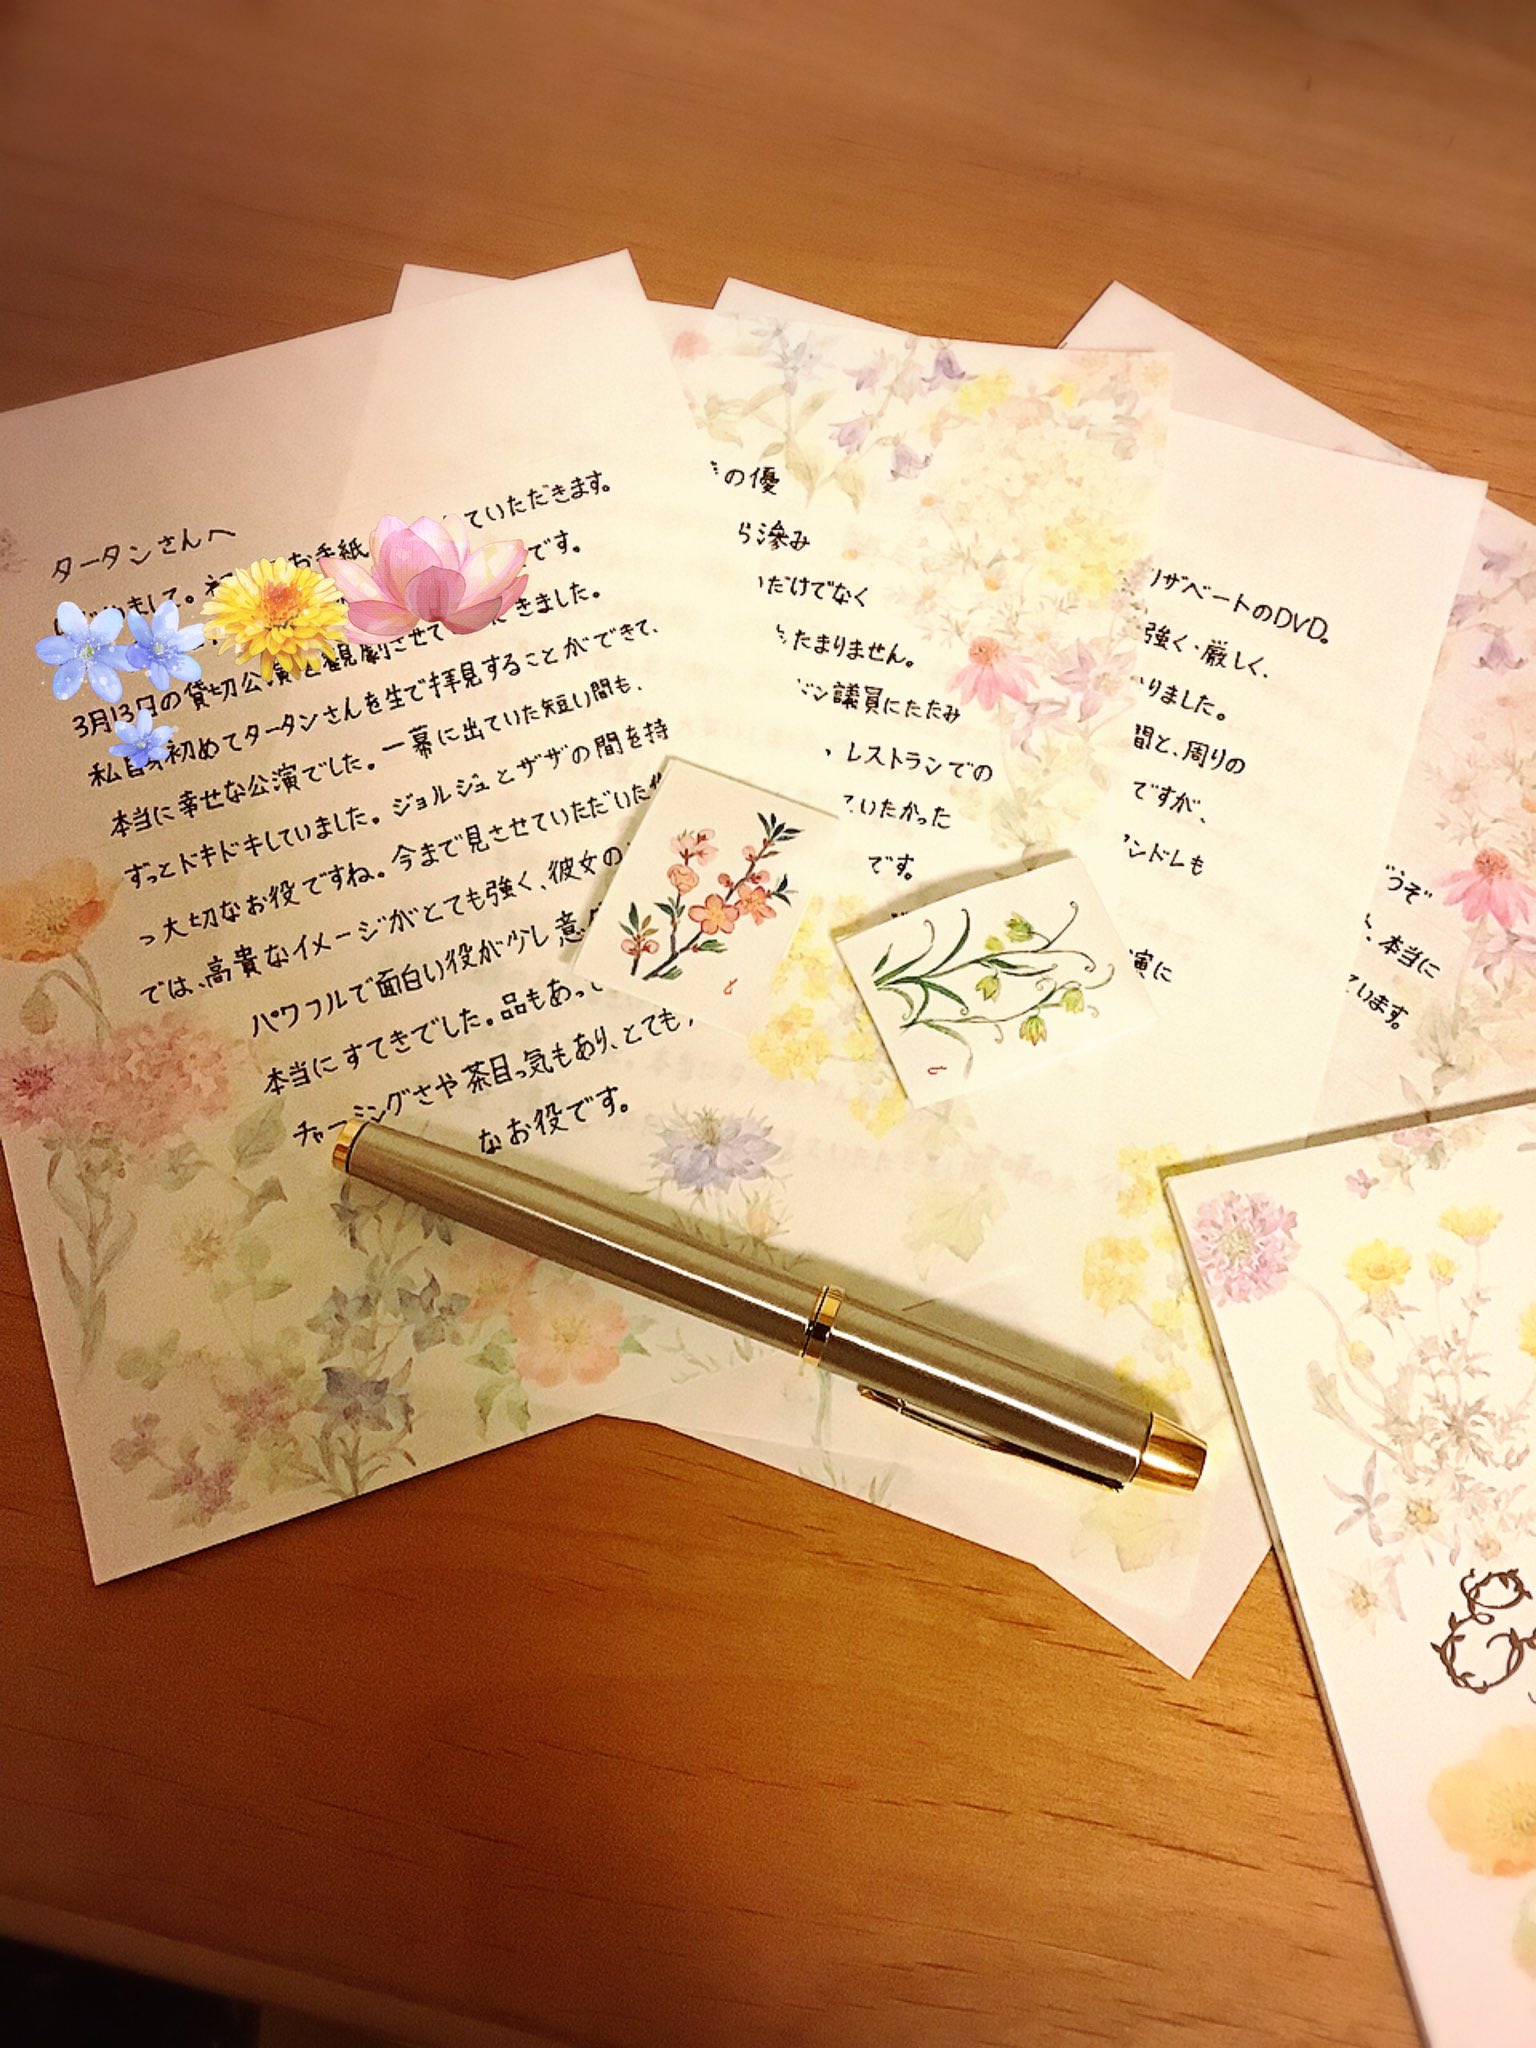 タータンさんへ
めまして。 お手紙 ていただきます。
です。
観劇させて きました。
3月13日の貸切公演
私自身初めてタータンさんを生で拝見することができて、
本当に幸せな公演でした。一幕に出ていた短い間も、
ずっとドキドキしていました。ジョルジュとザザの間を持
つ大切なお役ですね。今まで見させていただいた
では、高貴なイメージがとても強く、彼女の
パワフルで面白い役が少し意
本当にすてきでした。品もあって
チャーミングさや茶目っ気もあり、とても
なお役です。
の優
ら滲み
だけでなく
たまりません。
議員にたたみ
レストランでの
ていたかった
です。
リザベートのDVD。
強く・厳しく、
りました。
間と、周りの
ですが、
ンドレも
演に
うぞ
本当に
ています。